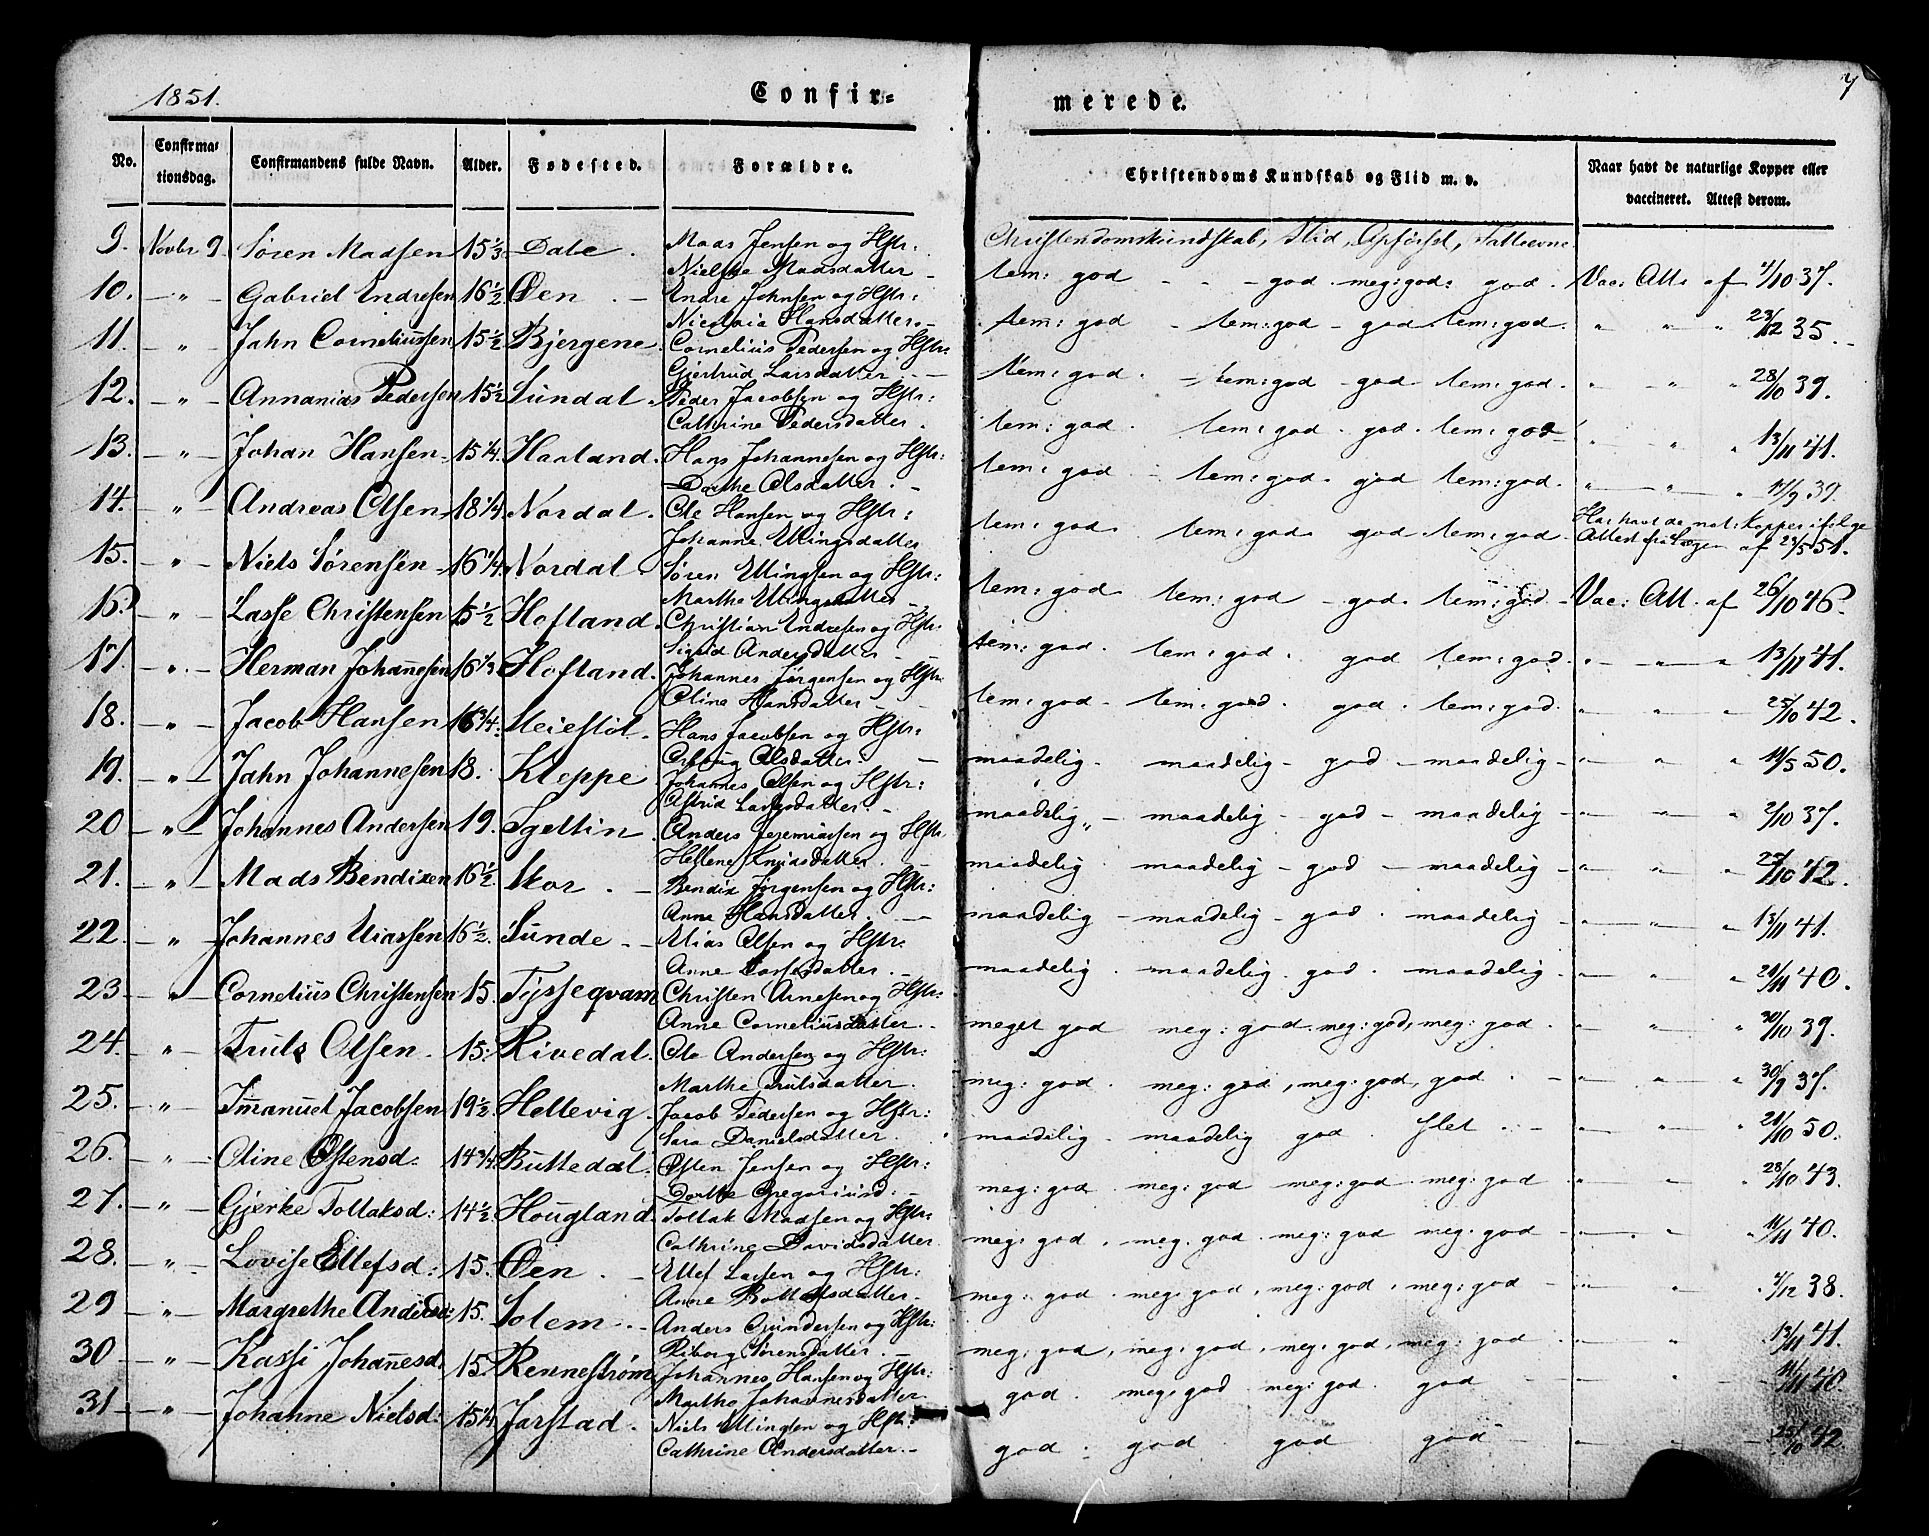 1851.
Confir=
merede.
7
No.
Confirma-
tionsdag.
Confirmandens fulde Navn.
Alder.
Fødested.
Forældre.
Christendoms Kundskab og Flid m. v.
Naar havt de naturlige Kopper eller
vaccineret. Attest derom.
Christendomskundskab, Flid, Opførsel, Fatteevne
9. Novbr 9. Søren Madsen 15 1/3 Dale. Maas Jensen og Hstr:
Nielske Maasdatter
tem: god - - god meg: god: god. Vac: Att. af 4/10 37.
10. - " - Gabriel Endresen 16 1/2 Øen. - Endre Johnsen og Hstr:
Nicolaia Hansdatter. -
tem: god - tem: god - god tem: god. " " " 23/12 35.
11. - " Jahn Corneliussen 15 1/2 Bjergene. Cornelius Pedersen og Hstr:
Gjertrud Larsdatter. -
tem: god. - tem: god - god tem: god. " " " 28/10 39.
12. - " - Annanias Pedersen 15 1/2 Sundal. Peder Jacobsen og Hstr:
Cathrine Pedersdatter.
tem: god. tem: god. god. tem: god " " " 13/11 41.
13. - " - Johan Hansen 15 1/4. Haaland. Hans Johannesen og Hstr:
Dorthe Olsdatter. -
tem: god - tem: god. god tem: god. " " " 17/9 39.
14. - " - Andreas Olsen 18 1/4. Nordal. Ole Hansen og Hstr:
Johanne Ellingsdatter
tem: god. tem: god. god tem: god. Har havt de nat: Kopper ifølge
Attest fra af 23/5 51.
15. - " - Niels Sørensen 16 1/4. Nordal. Søren Ellingsen og Hstr:
Marthe Ellingsdatter
tem: god. tem: god - god. tem: god - Vac: Att. af 26/10 46.
16. " - Lasse Christensen 15 1/2 Hofland. Christian Endresen og Hstr:
Sigrid Andersdatter -
tem: god. tem: god. god tem: god. " " " 13/11 41.
17. - " - Herman Johannesen 16 1/3 Hofland. Johannes Jørgensen og Hstr:
Oline Hansdatter -
tem: god - tem: god. god. tem: god. " " " 25/10 42.
18. - " - Jacob Hansen 16 3/4. Steiestøl. Hans Jacobsen og Hstr:
Olsdatter. -
maadelig. maadelig - god - maadelig - " " " 11/5 50.
19. - " - Jahn Johannesen 18. Kleppe Johannes Olsen og Hstr:
Astrid Larsdatter. -
maadelig - maadelig - god - maadelig - " " " 2/10 37.
20 - " - Johannes Andersen 19. Anders Jeremiassen og Hstr:
Hellene Knudsdatter. -
maadelig. maadelig - god - maadelig - " " " 25/10 42.
21. - " - Mads Bendixen 16 1/2 Skor. - Bendix Jørgensen og Hstr:
Anne Hansdatter. -
maadelig - maadelig - god. maadelig - " " " 13/11 41.
22. - " - Johannes Eliassen 16 1/2. Sunde. - Elias Olsen og Hstr.
Anne Lassesdatter. -
maadelig. maadelig. god. maadelig - " " " 21/11 40.
23 - " - Cornelius Christensen 15. Tysseqvam Christen Arnesen og Hstr:
Anne Corneliusdatter. -
meget god meg: god. meg: god, meg: god. " " " 30/10 39.
24. - " - Truls Olsen. 15: Rivedal. Ole Andersen og Hstr:
Marthe Trulsdatter.
meg: god. meg: god, meg: god, god. - " " " 30/9 37.
25. - " - Imanuel Jacobsen 19 1/2. Hellevig. Jacob Pedersen og Hstr:
Sara Danielsdatter.
maadelig. maadelig god slet. - " " " 21/10 50.
26. - " - Oline Østensd: 14 3/4 Buttedal. Østen Jensen og Hstr:
Dorthe Gregoriusd: -
meg: god. meg: god meg: god. meg: god " " " 28/10 43.
27. - " - Gjerke Tollaksd: 14 1/2. Hougland. Tollak Madsen og Hstr:
Cathrine Davidsdatter
meg: god. meg. god. meg: god meg: god " " " 11/11 40.
28. - " - Lovise Ellefsd: 15. Øen. - Ellef Lassen og Hstr:
Anne datter.
meg: god. meg: god, meg: god, meg: god - " " " 4/12 38.
29 - " - Margrethe Andersd: 15. Solem. - Anders Gundersen og Hstr:
Riborg Sørensdatter. -
meg: god, meg: god, meg: god, meg: god " " " 13/11 41.
30 - " - Kassi Johanesd. 15. Rennestrøm Johannes Hansen og Hstr:
Marthe Johannesdatter.
god. meg: god meg: god. god - - - - 11/11 40.
31 - " - Johanne Nielsd: 15 1/4. Jarstad. Niels Ellingsen og Hstr:
Cathrine Andersdatter. -
god: god god god - " " - 25/10 42.